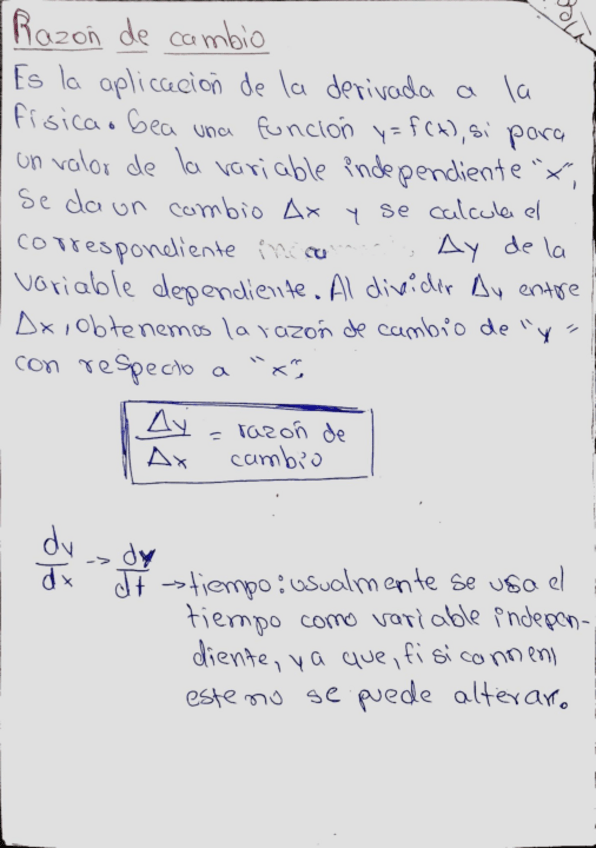 Razón de cambio
Es la aplicación de la derivada a la
física. Sea una función y=f(x), si para
un valor de la variable independiente "x",
se da un cambio Δx y se calcula el
correspondiente Δy de la
variable dependiente. Al dividir Δy entre
Δx, obtenemos la razón de cambio de "y"
con respecto a "x",
Δy/Δx = razón de cambio
dy/dx -> dy/dt -> tiempo: usualmente se usa el
tiempo como variable indepen-
diente, ya que,
este no se puede alterar.